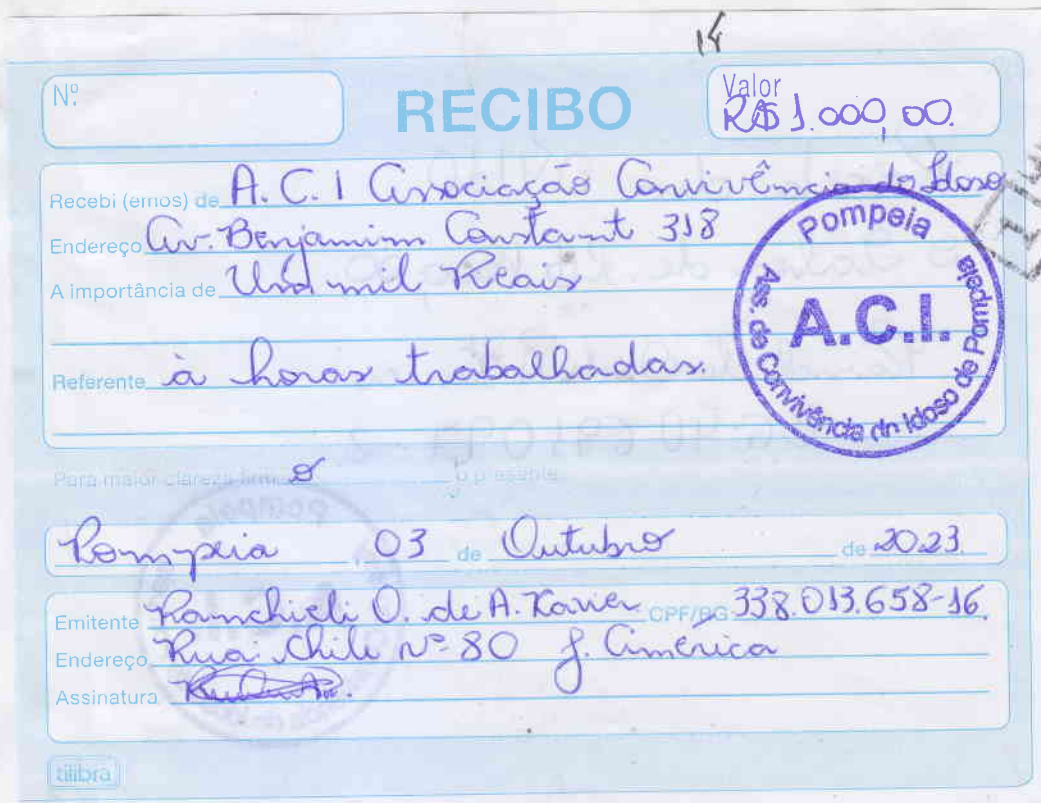 14
Nº
RECIBO
Valor
R$ 1.000,00.
Recebi (emos) de A.C.I Associação Convivência do Idoso
Endereço Av. Benjamim Constant 318
A importância de Um mil Reais
Referente à horas trabalhadas.
Pompeia
A.C.I.
Ass. de Convivência do Idoso de Pompeia
Para maior clareza firm o o presente
Pompeia, 03 de Outubro de 2023.
Emitente O. de A. Xavier CPF/RG 338.013.658-16
Endereço Rua: Chile Nº 80 J. América
Assinatura
tilibra